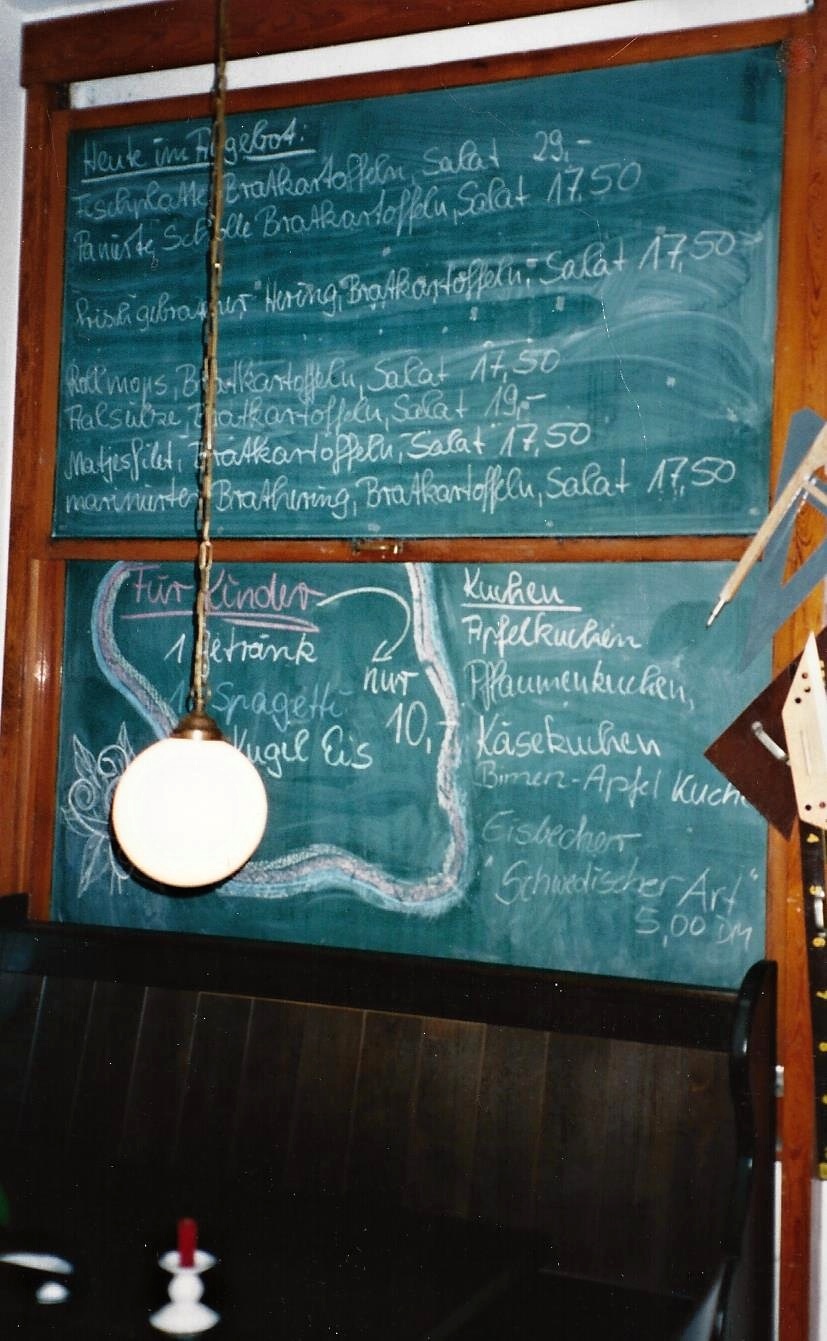 Heute im Angebot:
Fischplatte Bratkartoffeln, Salat 29,-
Panierte Scholle Bratkartoffeln, Salat 17,50
frisch gebratener Hering, Bratkartoffeln, Salat 17,50
Rollmops, Bratkartoffeln, Salat 17,50
Aalsülze, Bratkartoffeln, Salat 19,-
Matjesfilet, Bratkartoffeln, Salat 17,50
marinierter Brathering, Bratkartoffeln, Salat 17,50
Für Kinder
1 Getränk
1 Spagetti
Kugel Eis
nur
10,-
Kuchen
Apfelkuchen
Pflaumenkuchen,
Käsekuchen
Birnen-Apfel Kuche
Eisbecher
"Schwedischer Art"
5,00 DM